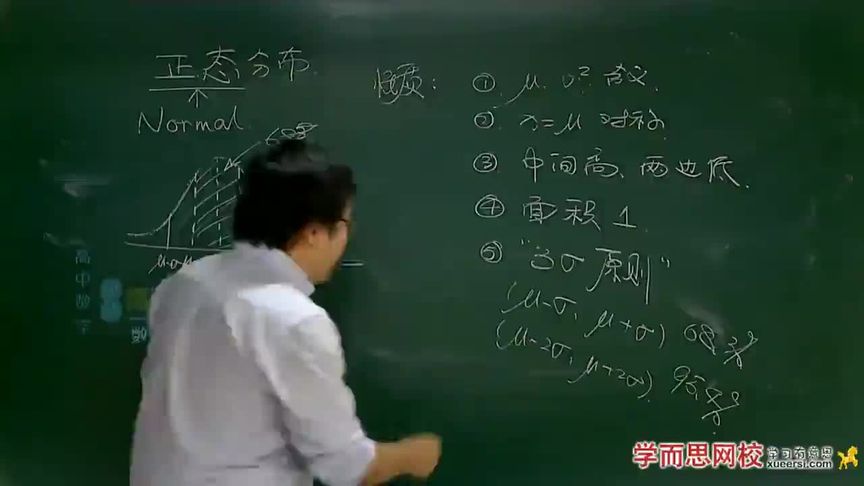 正态分布
Normal
68%
μ-σ μ
性质：
① μ, σ² 含义.
② x=μ 对称.
③ 中间高、两边低.
④ 面积 1.
⑤ "3σ 原则"
(μ-σ, μ+σ) 68.3%
(μ-2σ, μ+2σ) 95.4%
高中数学
学而思网校
学习有意思
xueersi.com